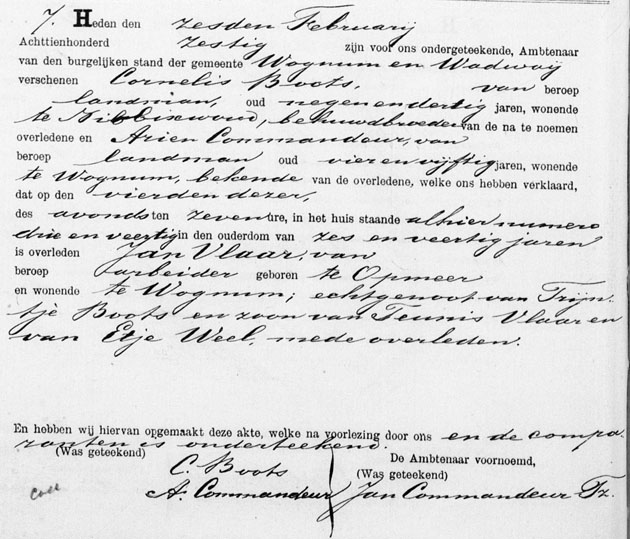 7. Heden den zesden Februarij
Achttienhonderd zestig zijn voor ons ondergeteekende, Ambtenaar
van den burgelijken stand der gemeente Wognum en Wadwaij
verschenen Cornelis Boots, van beroep
landman, oud negen en dertig jaren, wonende
te Nibbixwoud, behuwdbroeder van de na te noemen
overledene en Arien Commandeur, van
beroep landman oud vier en vijftig jaren, wonende
te Wognum, bekende van de overledene, welke ons hebben verklaard,
dat op den vierden dezer,
des avonds ten zeven ure, in het huis staande alhier numero
drie en veertig in den ouderdom van zes en veertig jaren
is overleden Jan Vlaar, van
beroep arbeider geboren te Opmeer
en wonende te Wognum; echtgenoot van Trijn-
tje Boots en zoon van Teunis Vlaar en
van Etje Weel, mede overleden.
En hebben wij hiervan opgemaakt deze akte, welke na voorlezing door ons en de compa-
ranten is onderteekend.
(Was geteekend) De Ambtenaar voornoemd,
C. Boots (Was geteekend)
A. Commandeur Jan Commandeur Tz.
Coll